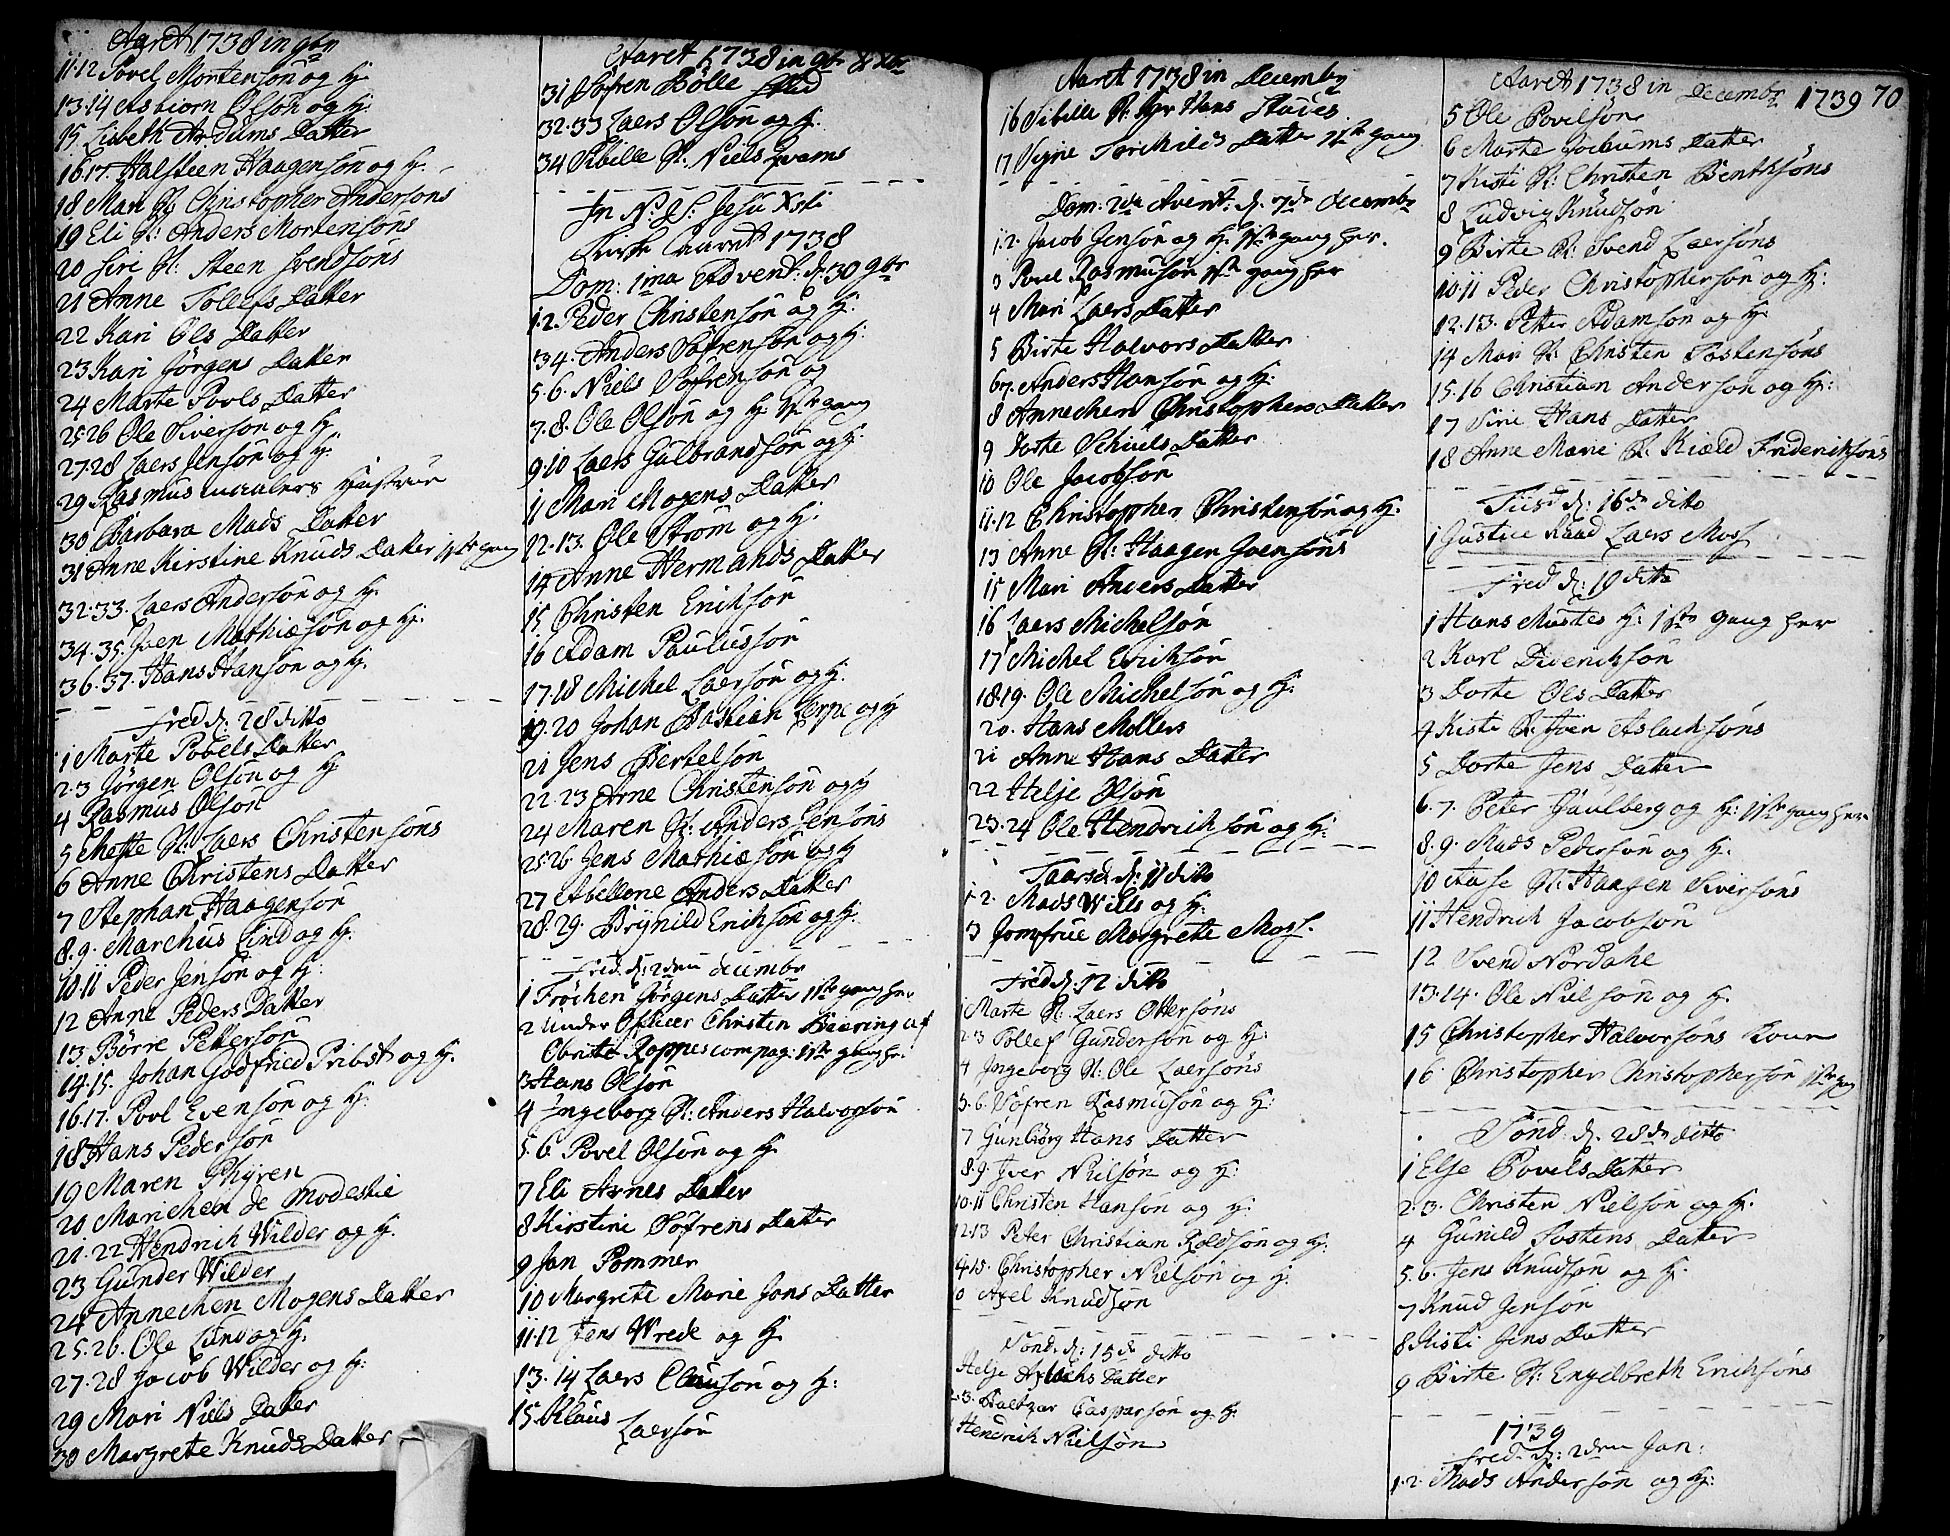 Aaret 1738 in 9br
11.12 Povel Mortensøn og H.
13.14 Asbiorn Olsøn og H.
15 Lisbeth Ardums Datter
16.17. Halsteen Haagensøn og H.
18 Mari H: Christopher Andersøns
19 Eli H: Anders Mortensøns
20 Siri H: Steen Svendsøns
21 Anne Tollefs Datter
22 Kari Ols Datter
23 Kari Jörgens Datter
24 Marte Povls Datter
25 26 Ole Siversøn og H.
27.28 Laers Jensøn og H.
29 Rasmus Hustrue
30 Barbara Mads Datter
31 Anne Kirstine Knuds Datter 1ste gang
32.33. Laers Andersøn og H.
34.35. Joen Mathiæsøn og H.
36.37. Hans Hansøn og H.
Fred d: 28 ditto
1 Marte Pobels Datter
2.3 Jörgen Olsøn og H
4 Rasmus Olsøn
5 Mette H: Laers Christensøns
6 Anne Christens Datter
7 Stephan Haagensøn
8.9. Marchus Lind og H.
10.11 Peder Jensøn og H.
12 Anne Peders Datter
13. Börre Pettersøn
14.15. Johan Godfried Pribst og H.
16.17. Povl Evensøn og H.
18 Hans Pedersøn
19 Maren Phyren
20 Marichen de Modestie
21.22 Hendrich Wilder og H.
23 Gunder Wilder
24 Annechen Mogens Datter
25.26. Ole Lund og H.
27.28 Jacob Wilder og H:
29 Mari Niels Datter
30 Margrete Knuds Datter
Aaret 1738 in 9br & Xbr
31 Sofren Bölle
32.33 Laers Olsøn og H.
34 Sibille H. Niels Qvams
In N: S: Jesu Xsti
Kirke Aaret 1738
Dom: 1ma Advent: d. 30 9br
1.2. Peder Christensøn og H.
3.4. Anders Sofrensøn og H.
5.6. Niels Sofrensøn og
7.8. Ole Olsøn og H. 1ste gang
9.10 Laers Gulbrandsøn og H.
11 Mari Mogens Datter
12.13. Ole Strøm og H.
14 Anne Hermands Datter
15 Christen Eriksøn
16 Adam Paulussøn
17.18 Michel Laersøn og H.
19.20 Johan Bastian og H
21 Jens Bertelsøn
22.23 Arne Christensøn og H
24 Maren H: Anders Jensøns
25 26 Jens Mathiæsøn og H
27 Abellone Anders Datter
28.29. Brynild Eriksøn og H.
Fred. d: 2den decembr
1 Frøchen Jörgens Datter 1ste gang her
2 Under Officer Christen Biering af
Obriste Roppes compag: 1ste gang her.
3 Hans Olsøn
4 Ingeborg H: Anders Halvorsøn
5.6 Povel Olsøn og H.
7 Eli Arnes Datter
8 Kirstine Söfrens Datter
9 Jan Pommer
10 Margrete Marie Jans Datter
11.12 Jens Wrede og H.
13.14 Laers Clausøn og H:
15. Klaus Laersøn
Aaret 1738 in Decembr
16 Sibille H. Hans
17 Signe Torchilds Datter 1ste gang
Dom: 2da Avent: d. 7de decembr
1.2. Jacob Jensøn og H. 1ste gang her.
3 Povel Rasmusøn 1ste gang her
4 Mari Laers Datter
5 Birte Halvors Datter
6.7. Anders Hansøn og H:
8 Annechen Christophers Datter
9 Dorte Schiuls Datter
10 Ole Jacobsøn
11.12 Christopher Christensøn og H.
13 Anne H: Haagen Joensøns
15 Mari Anders Datter
16 Laers Michelsøn
17 Michel Eriksøn
18.19. Ole Michelsøn og H.
20. Hans Mollers
21 Anne Hans Datter
22 Helje Olsøn
23.24 Ole Hendrichsøn og H:
Taarsd. d: 11 ditto
1.2. Mads Wills og H.
3 Jomfrue Margrete Moss.
Fred d: 12 ditto
1 Marte H: Laers Ottersøns
2.3 Tollef Gundersøn og H:
4 Ingeborg H: Ole Laersøns
5.6. Söfren Rasmusøn og H:
7 Gunbiørg Hans Datter
8.9. Iver Nielsøn og H:
10.11 Christen Hansøn og H:
12.13 Peter Christian Roldsøn og H.
14.15. Christopher Nielsøn og H.
Axel Knudsøn
Sønd. d: 15de ditto
Helje Aslachs Datter
2.3. Baltzar Caspersøn og H.
Hendrich Nielsøn
Aaret 1738 in Decembr 1739 70
5 Ole Povilsøn
6 Marte Jochums Datter
7 Kisti H: Christen Bentsøns
8 Ludvig Knudsøn
9 Birte H. Svend Laersøns
10.11 Peder Christophersøn og H:
12.13. Petter Adamsøn og H.
14 Mari H: Christen Tostensøns
15.16 Christian Andersøn og H:
17 Siri Hans Datter
18 Anne Marie H. Kield Friderichsøns
Tiisd d: 16de ditto
1 Justice Raad Laers Moss
Fred d: 19 ditto
1 Hans Mustes H: 1ste gang her
2 Karl Diderichsøn
3 Dorte Ols Datter
4 Kiste H: Joen Aslachsøns
5 Dorte Jens Datter
6.7. Peter Paulberg og H: 1ste gang her
8.9. Mads Pedersøn og H.
10 Aase H: Haagen Siversøns
11 Hendrich Jacobsøn
12 Svend Nordahe
13.14. Ole Nielsøn og H.
15 Christopher Halvorsøns Kone
16 Christopher Christophersøn 1ste gang
Sönd. d. 28de ditto
1 Else Povels Datter
2.3. Christen Nielsøn og H.
4 Gunild Tostens Datter
5.6. Jens Knudsøn og H.
7 Knud Jensøn
8 Kisti Jens Datter
9 Birte H: Engelbreth Erichsøns
1739
Fred. d: 2den Jan:
1.2. Mads Andersøn og H: